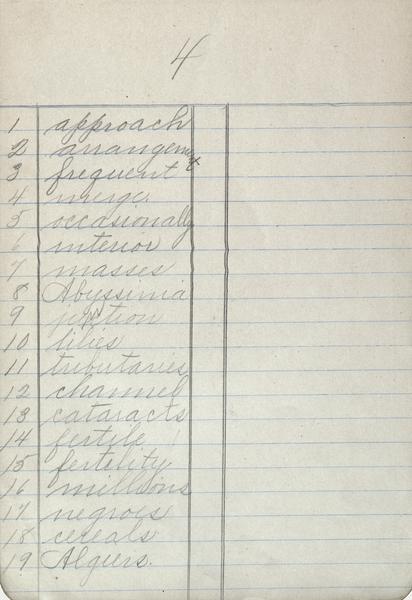 4
1 approach
2 arrangement
3 frequent
4 merge
5 occasionally
6 interior
7 masses
8 Abyssinia
9
10 lilies
11 tributaries
12 channel
13 cataracts
14 fertile
15 fertelity
16 millions
17 negroes
18 cereals
19 Algiers.